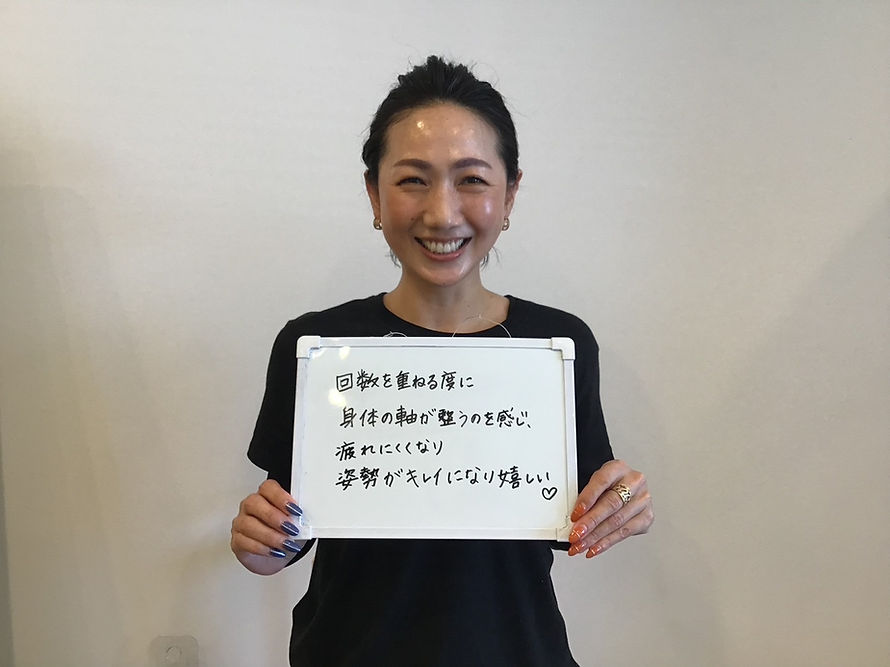 回数を重ねる度に
身体の軸が整うのを感じ、
疲れにくくなり
姿勢がキレイになり嬉しい♡